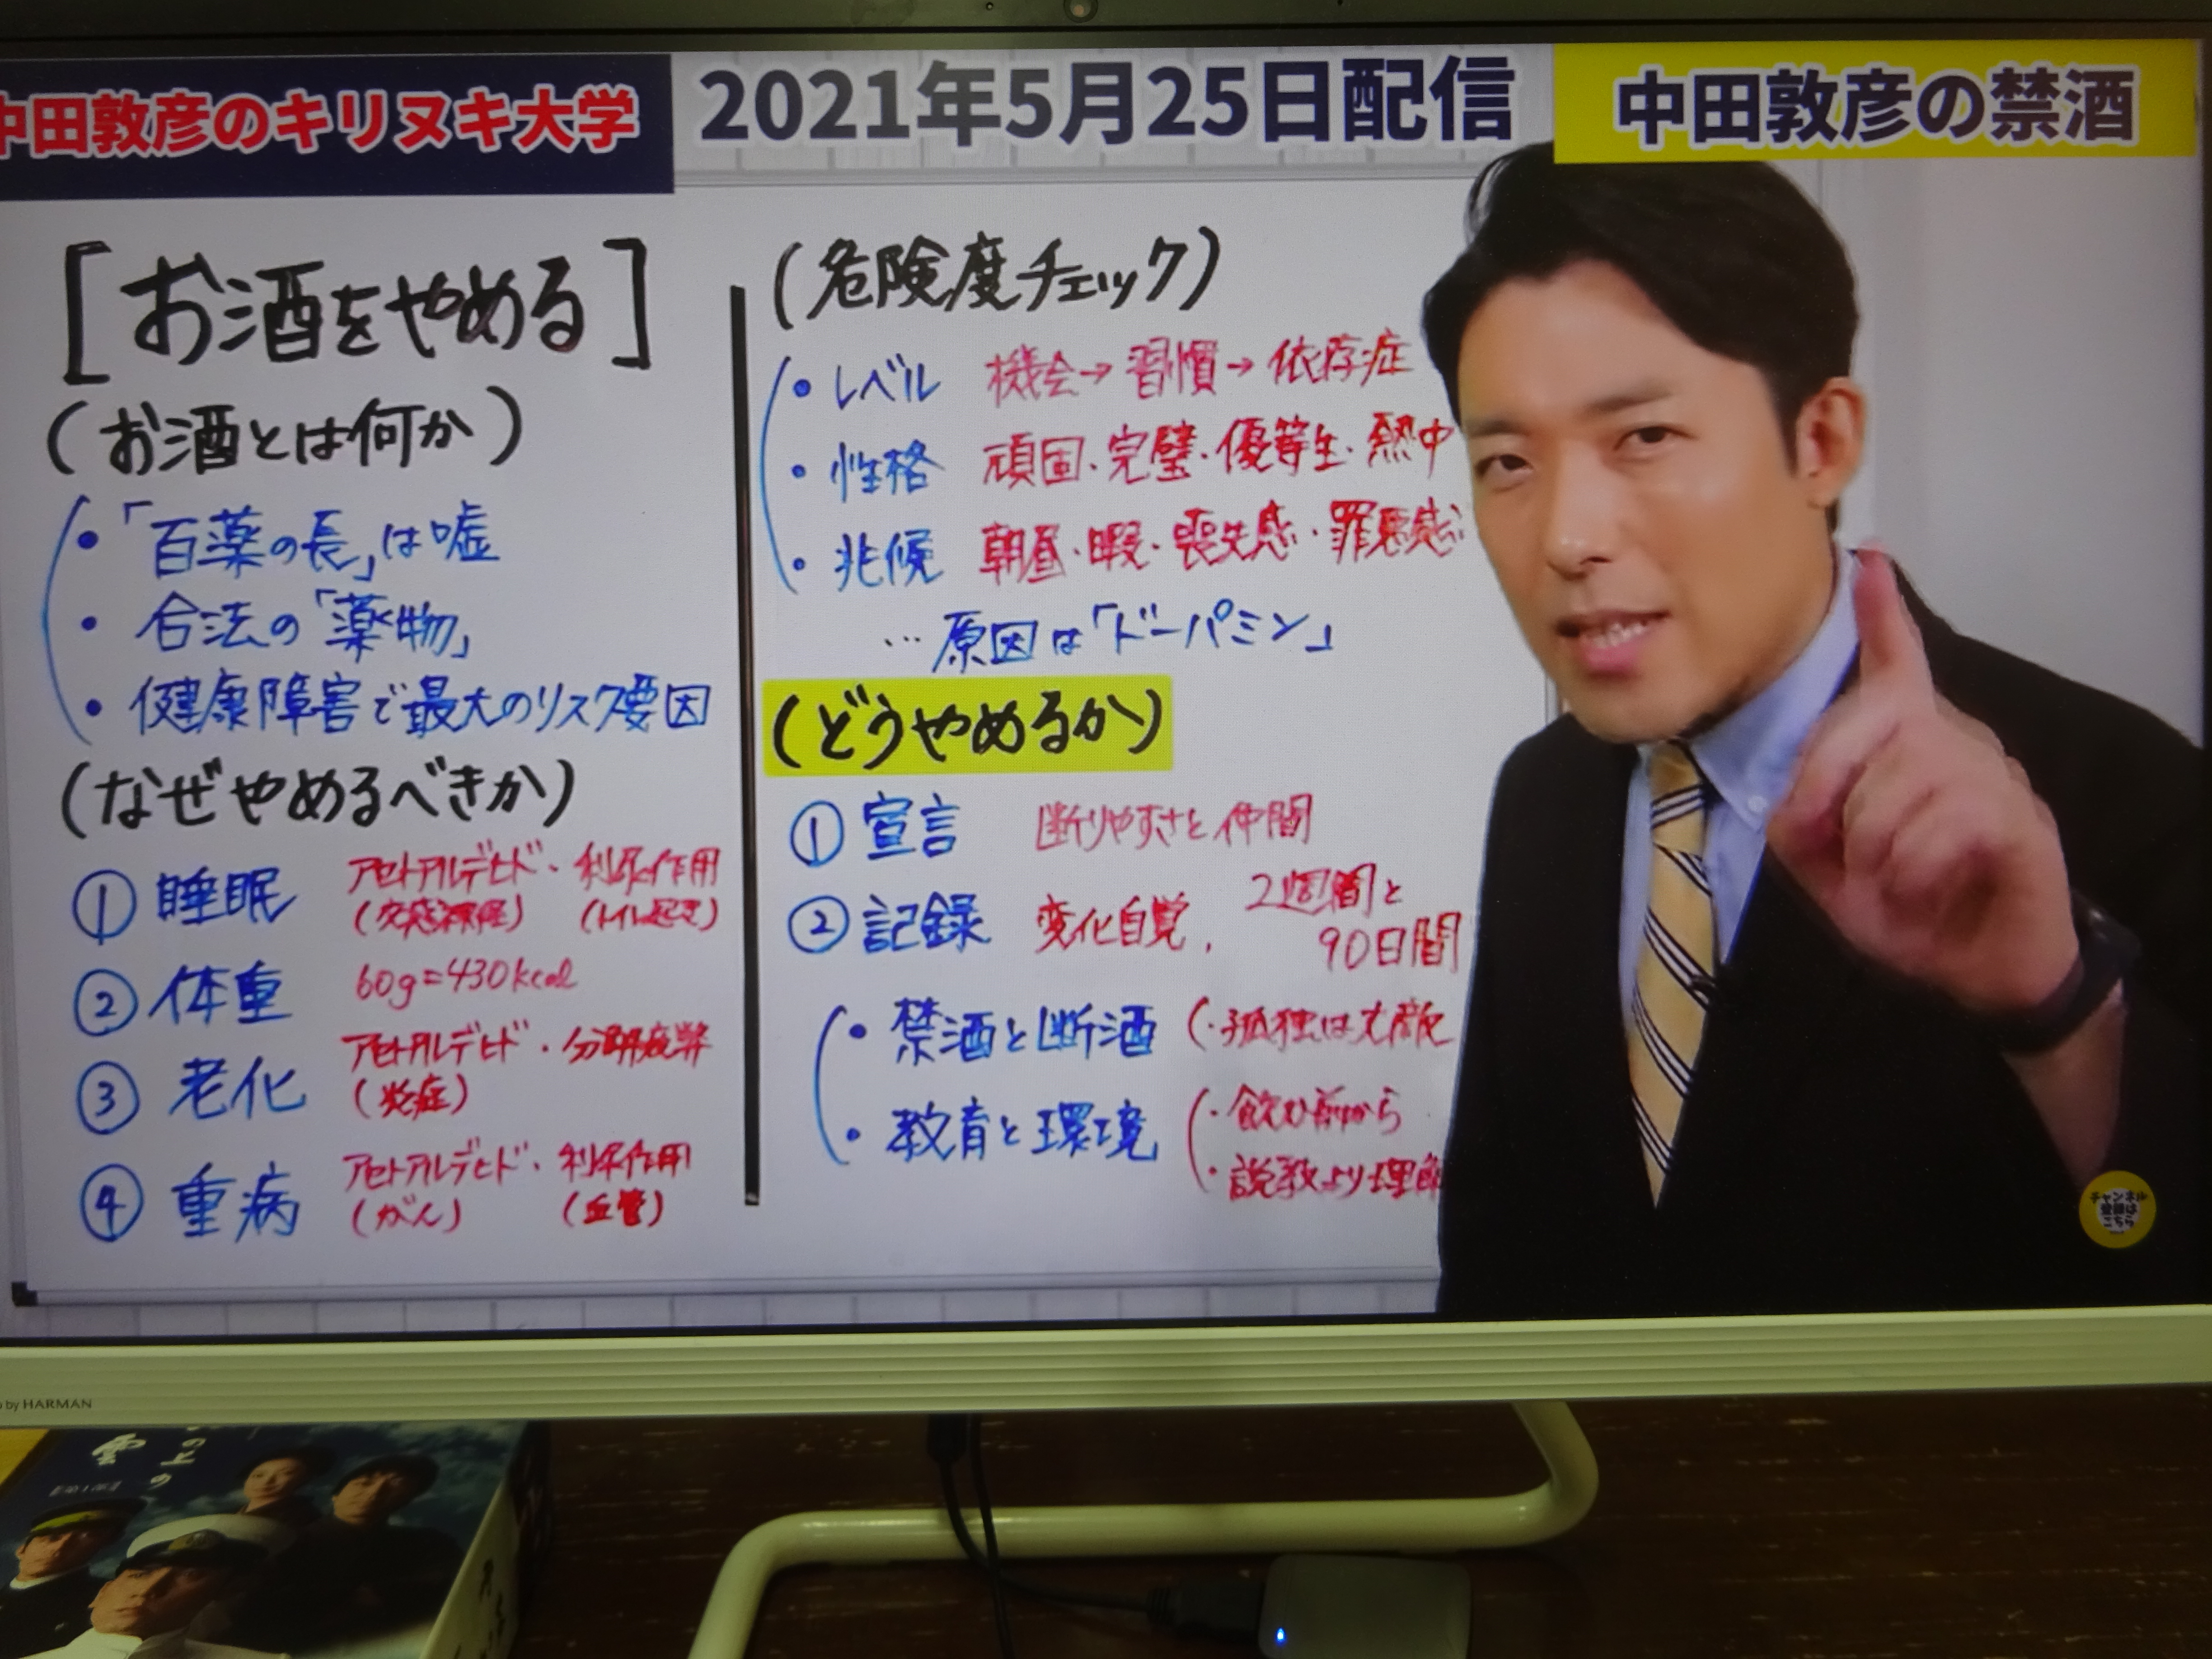 中田敦彦のキリヌキ大学
2021年5月25日配信
中田敦彦の禁酒
[お酒をやめる]
(お酒とは何か)
・「百薬の長」は嘘
・合法の「薬物」
・健康障害で最大のリスク要因
(なぜやめるべきか)
① 睡眠 アセトアルデヒド・利尿作用
(交感神経) (トイレ起き)
② 体重 60g=430kcal
③ 老化 アセトアルデヒド・分解疲弊
(炎症)
④ 重病 アセトアルデヒド・利尿作用
(がん) (血管)
(危険度チェック)
・レベル 機会→習慣→依存症
・性格 頑固・完璧・優等生・熱中
・兆候 朝昼・暇・喪失感・罪悪感
…原因は「ドーパミン」
(どうやめるか)
① 宣言 断りやすさと仲間
② 記録 変化自覚, 2週間と
90日間
・禁酒と断酒 (・孤独は大敵
・教育と環境 (・飲む前から
・説教より理解
チャンネル
登録は
こちら
by HARMAN
の上の
雲